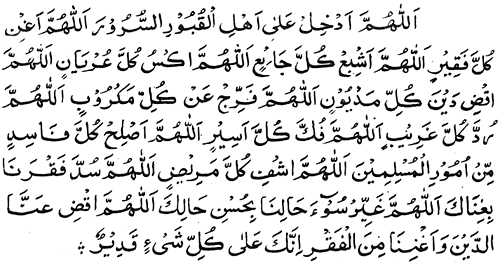 اَللّٰهُمَّ اَدْخِلْ عَلٰى اَهْلِ الْقُبُوْرِ السُّرُوْرَ اَللّٰهُمَّ اَغْنِ
كُلَّ فَقِيْرٍ اَللّٰهُمَّ اَشْبِعْ كُلَّ جَايِعٍ اَللّٰهُمَّ اكْسُ كُلَّ عُرْيَانٍ اَللّٰهُمَّ
اقْضِ دَيْنَ كُلِّ مَدْيُوْنٍ اَللّٰهُمَّ فَرِّجْ عَنْ كُلِّ مَكْرُوْبٍ اَللّٰهُمَّ
رُدَّ كُلَّ غَرِيْبٍ اَللّٰهُمَّ فُكَّ كُلَّ اَسِيْرٍ اَللّٰهُمَّ اَصْلِحْ كُلَّ فَاسِدٍ
مِّنْ اُمُوْرِ الْمُسْلِمِيْنَ اَللّٰهُمَّ اشْفِ كُلَّ مَرِيْضٍ اَللّٰهُمَّ سُدَّ فَقْرَنَا
بِغِنَاكَ اَللّٰهُمَّ غَيِّرْ سُوْٓءَ حَالِنَا بِحُسْنِ حَالِكَ اَللّٰهُمَّ اقْضِ عَنَّا
الدَّيْنَ وَاَغْنِنَا مِنَ الْفَقْرِ اِنَّكَ عَلٰى كُلِّ شَىْءٍ قَدِيْرٌ